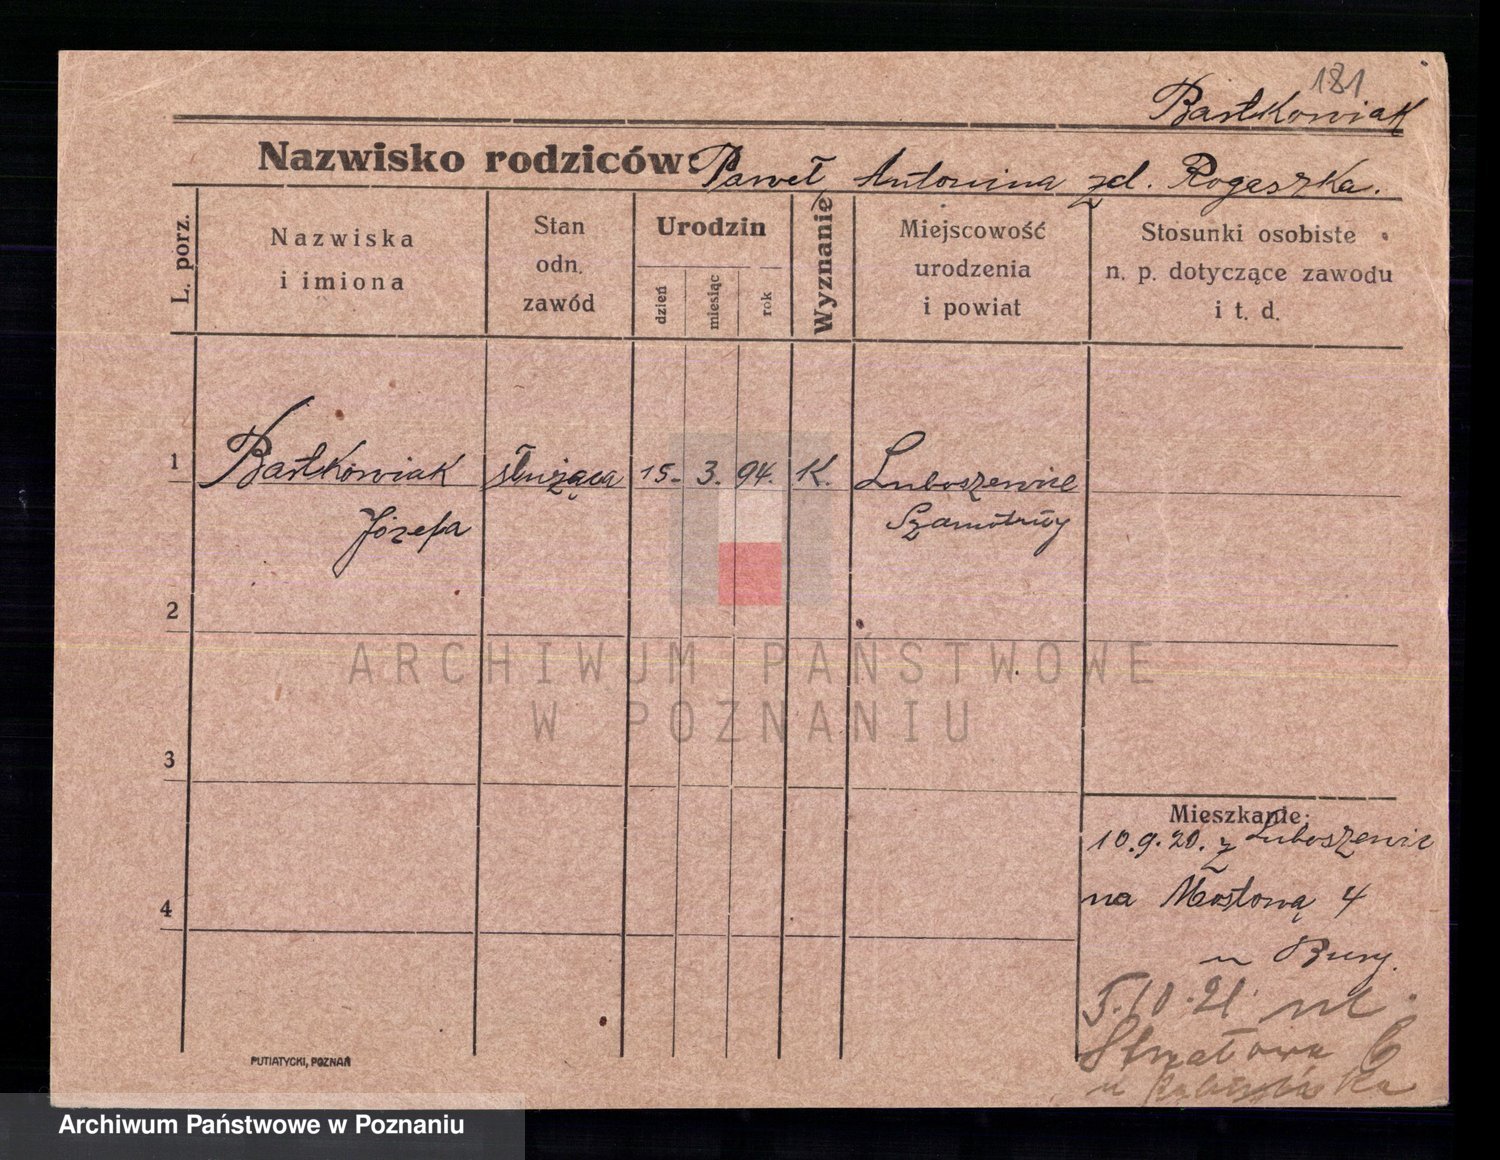 181
Bartkowiak
Nazwisko rodziców: Paweł, Antonina zd. Rogaszka.
L. porz.
Nazwiska
i imiona
Stan
odn.
zawód
Urodzin
dzień
miesiąc
rok
Wyznanie
Miejscowość
urodzenia
i powiat
Stosunki osobiste
n. p. dotyczące zawodu
i t. d.
1 Bartkowiak służąca 15. 3. 94. K. Luboszewice
Józefa Szamotuły
2
ARCHIWUM PAŃSTWOWE
W POZNANIU
3
Mieszkanie:
10.9.20. z Luboszewic
na Mostową 4
u Bury.
4
5.10.21. ul.
Strzałowa 6
u
PUTIATYCKI, POZNAŃ
Archiwum Państwowe w Poznaniu